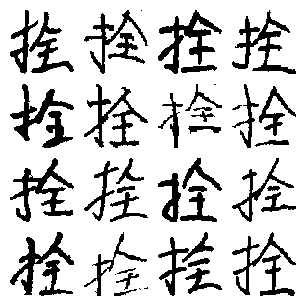 拴拴拴拴
拴拴拴拴
拴拴拴拴
拴拴拴拴